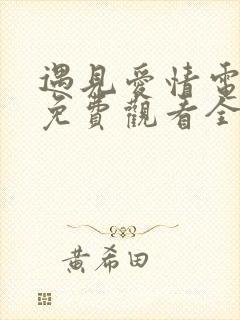 遇見愛情電
免費觀看全
黃希田